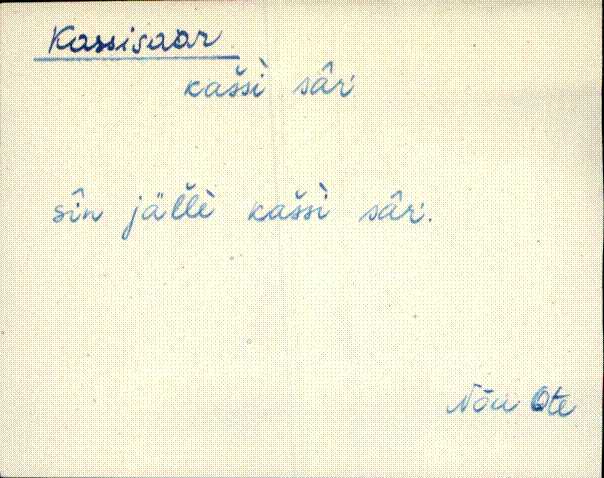 Kassisaar
kašsì sâr
sîn jäľľè kašsì sâr.
Nõu Ote